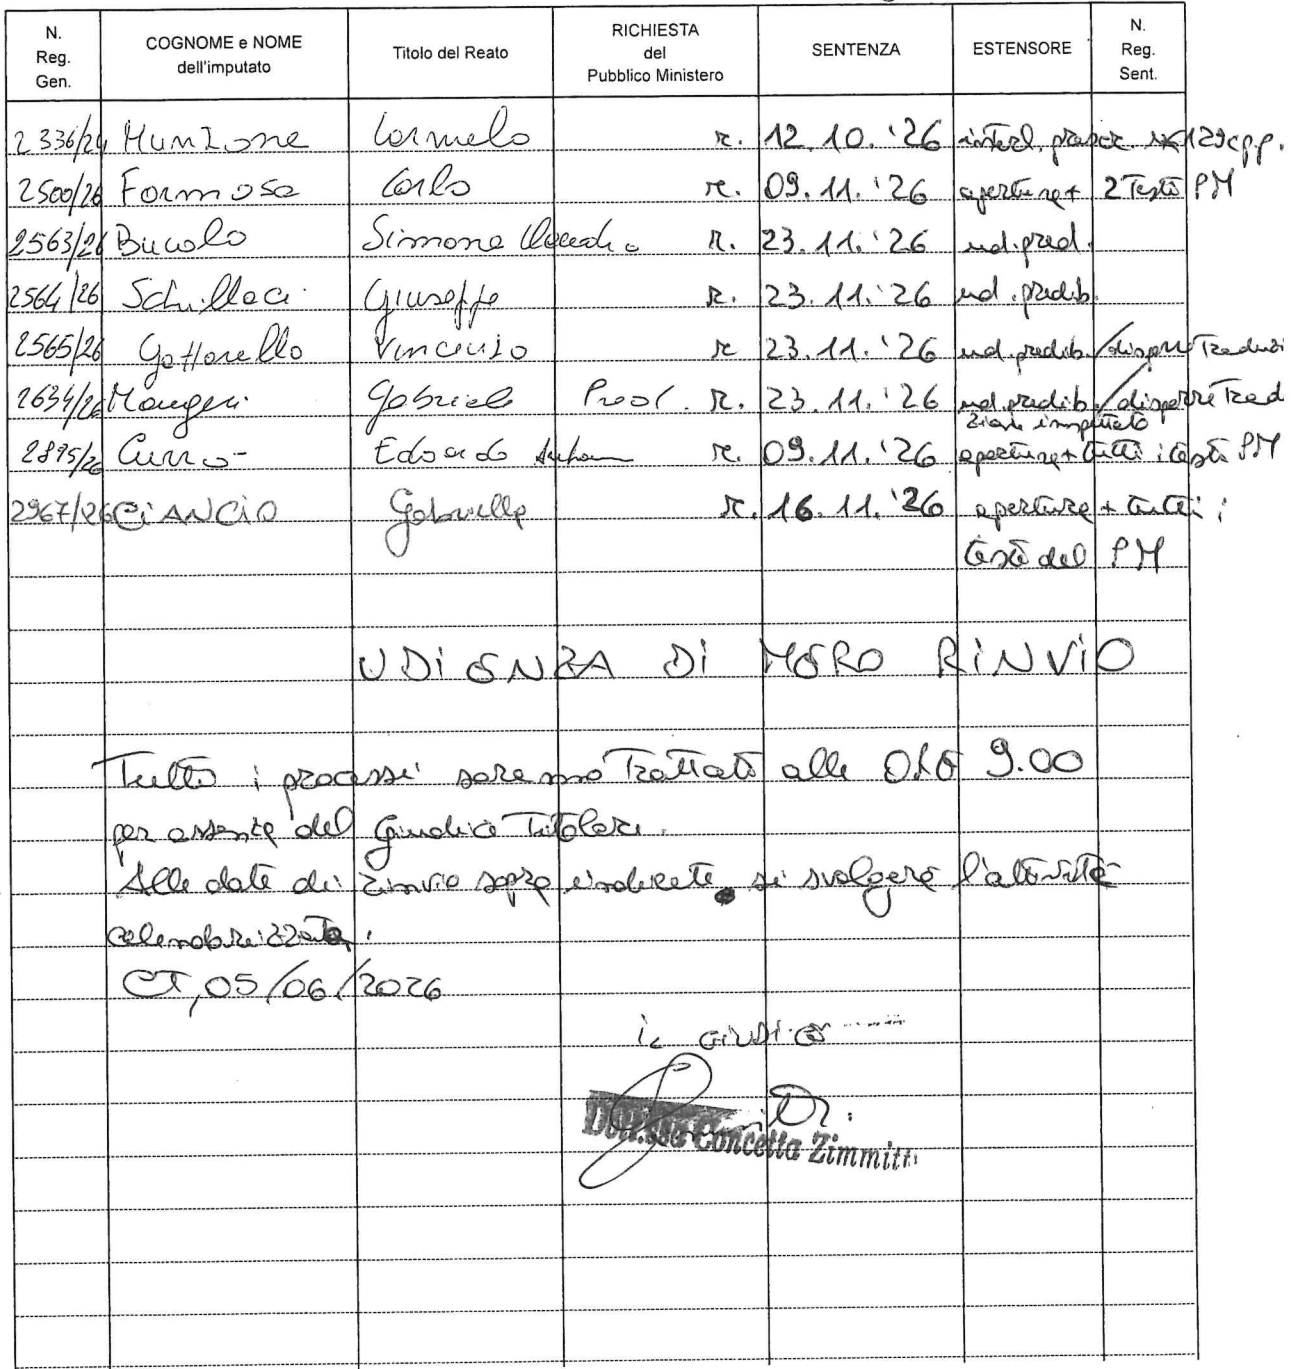 N. Reg. Gen. COGNOME e NOME dell'imputato Titolo del Reato RICHIESTA del Pubblico Ministero SENTENZA ESTENSORE N. Reg. Sent.
2336/24 Munzone Carmelo r. 12.10.'26 129 cpp.
2500/26 Formosa Carlo r. 09.11.'26 apertura + 2 Testi PM
2563/26 Bucolo Simone r. 23.11.'26 ud. pred.
2564/26 Schillaci Giuseppe r. 23.11.'26 ud. predib.
2565/26 Gattarello Vincenzo r. 23.11.'26 ud. predib. / disporre Traduzi
2634/26 Maugeri Gabriele r. 23.11.'26 ud. predib. / disporre Trad
zione imputato
2895/26 Curro- Edoardo r. 09.11.'26 apertura + tutti i testi PM
2967/26 CIANCIO Gabriele r. 16.11.'26 apertura + tutti i
testi del PM
UDIENZA DI MERO RINVIO
Tutti i processi saranno Trattati alle ORE 9.00
per assenza del Giudice Titolare.
Alle date di rinvio sopra indicate si svolgerà l'attività
calendarizzata.
CT, 05/06/2026
IL GIUDICE
Dott.ssa Concetta Zimmitti